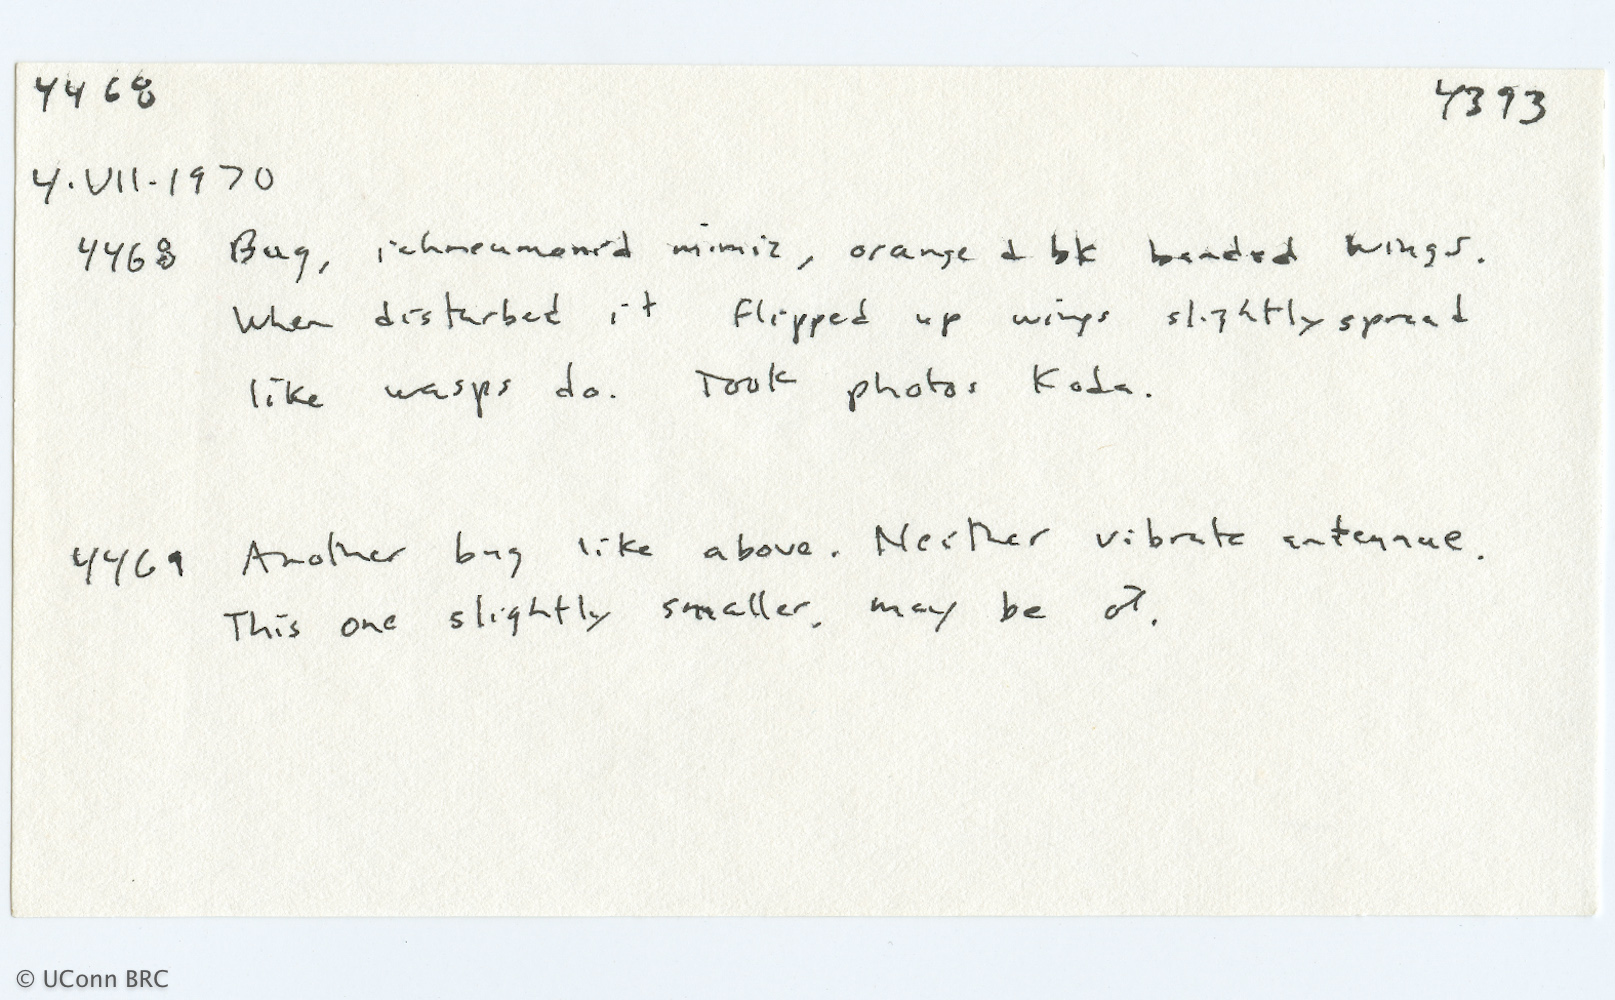 4468 4393
4.VII.1970
4468 Bug, ichneumonid mimic, orange & bk banded wings.
When disturbed it flipped up wings slightly spread
like wasps do. Took photos Koda.
4469 Another bug like above. Neither vibrate antennae.
This one slightly smaller, may be ♂.
© UConn BRC